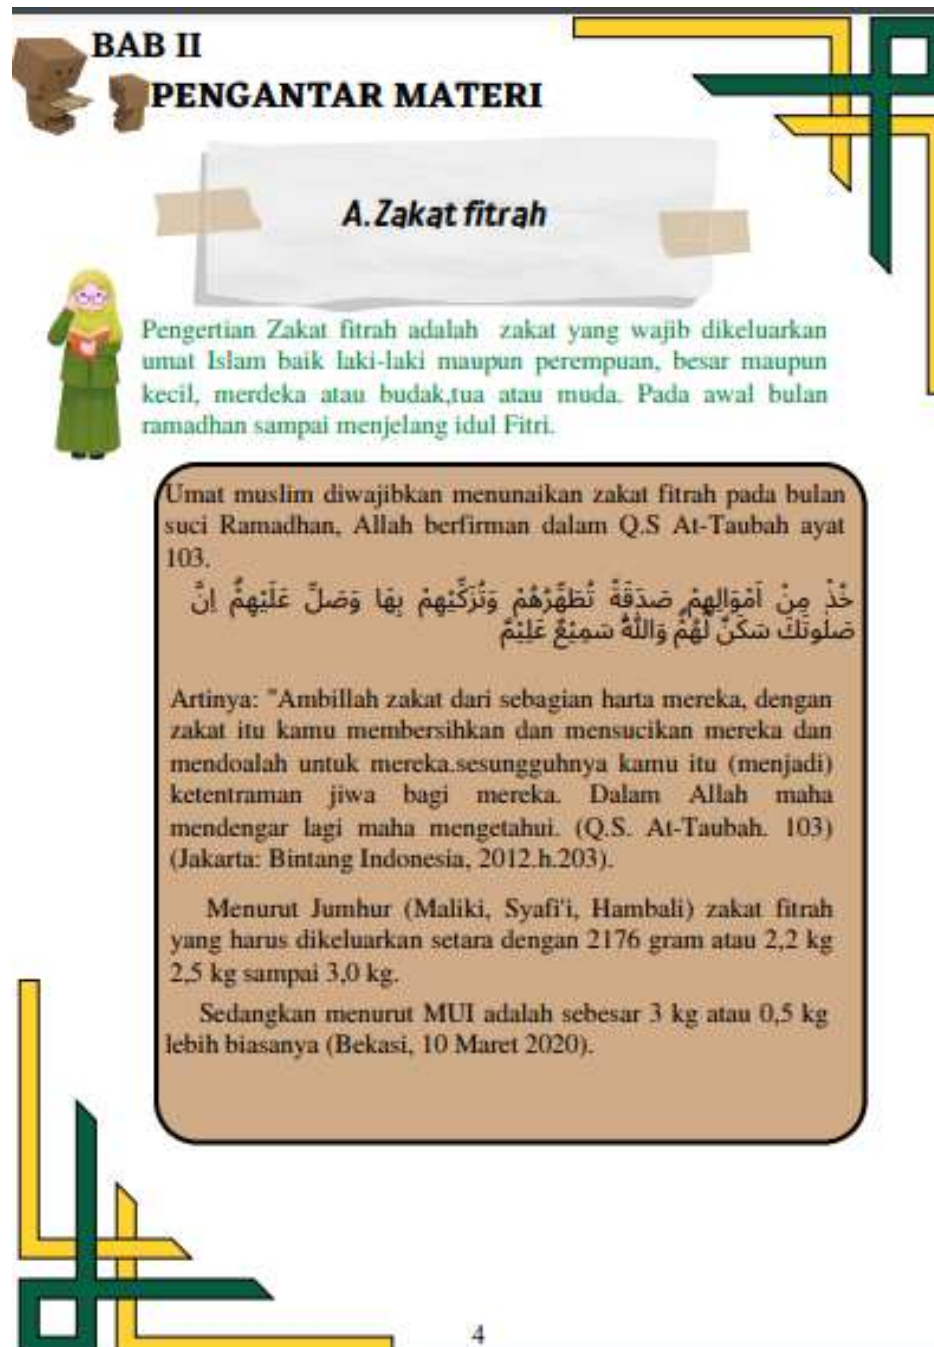 BAB II
PENGANTAR MATERI
A.Zakat fitrah
Pengertian Zakat fitrah adalah zakat yang wajib dikeluarkan
umat Islam baik laki-laki maupun perempuan, besar maupun
kecil, merdeka atau budak,tua atau muda. Pada awal bulan
ramadhan sampai menjelang idul Fitri.
Umat muslim diwajibkan menunaikan zakat fitrah pada bulan
suci Ramadhan, Allah berfirman dalam Q.S At-Taubah ayat
103.
خُذْ مِنْ اَمْوَالِهِمْ صَدَقَةً تُطَهِّرُهُمْ وَتُزَكِّيْهِمْ بِهَا وَصَلِّ عَلَيْهِمْۗ اِنَّ
صَلٰوتَكَ سَكَنٌ لَّهُمْۗ وَاللّٰهُ سَمِيْعٌ عَلِيْمٌ
Artinya: "Ambillah zakat dari sebagian harta mereka, dengan
zakat itu kamu membersihkan dan mensucikan mereka dan
mendoalah untuk mereka.sesungguhnya kamu itu (menjadi)
ketentraman jiwa bagi mereka. Dalam Allah maha
mendengar lagi maha mengetahui. (Q.S. At-Taubah. 103)
(Jakarta: Bintang Indonesia, 2012.h.203).
Menurut Jumhur (Maliki, Syafi'i, Hambali) zakat fitrah
yang harus dikeluarkan setara dengan 2176 gram atau 2,2 kg
2,5 kg sampai 3,0 kg.
Sedangkan menurut MUI adalah sebesar 3 kg atau 0,5 kg
lebih biasanya (Bekasi, 10 Maret 2020).
4